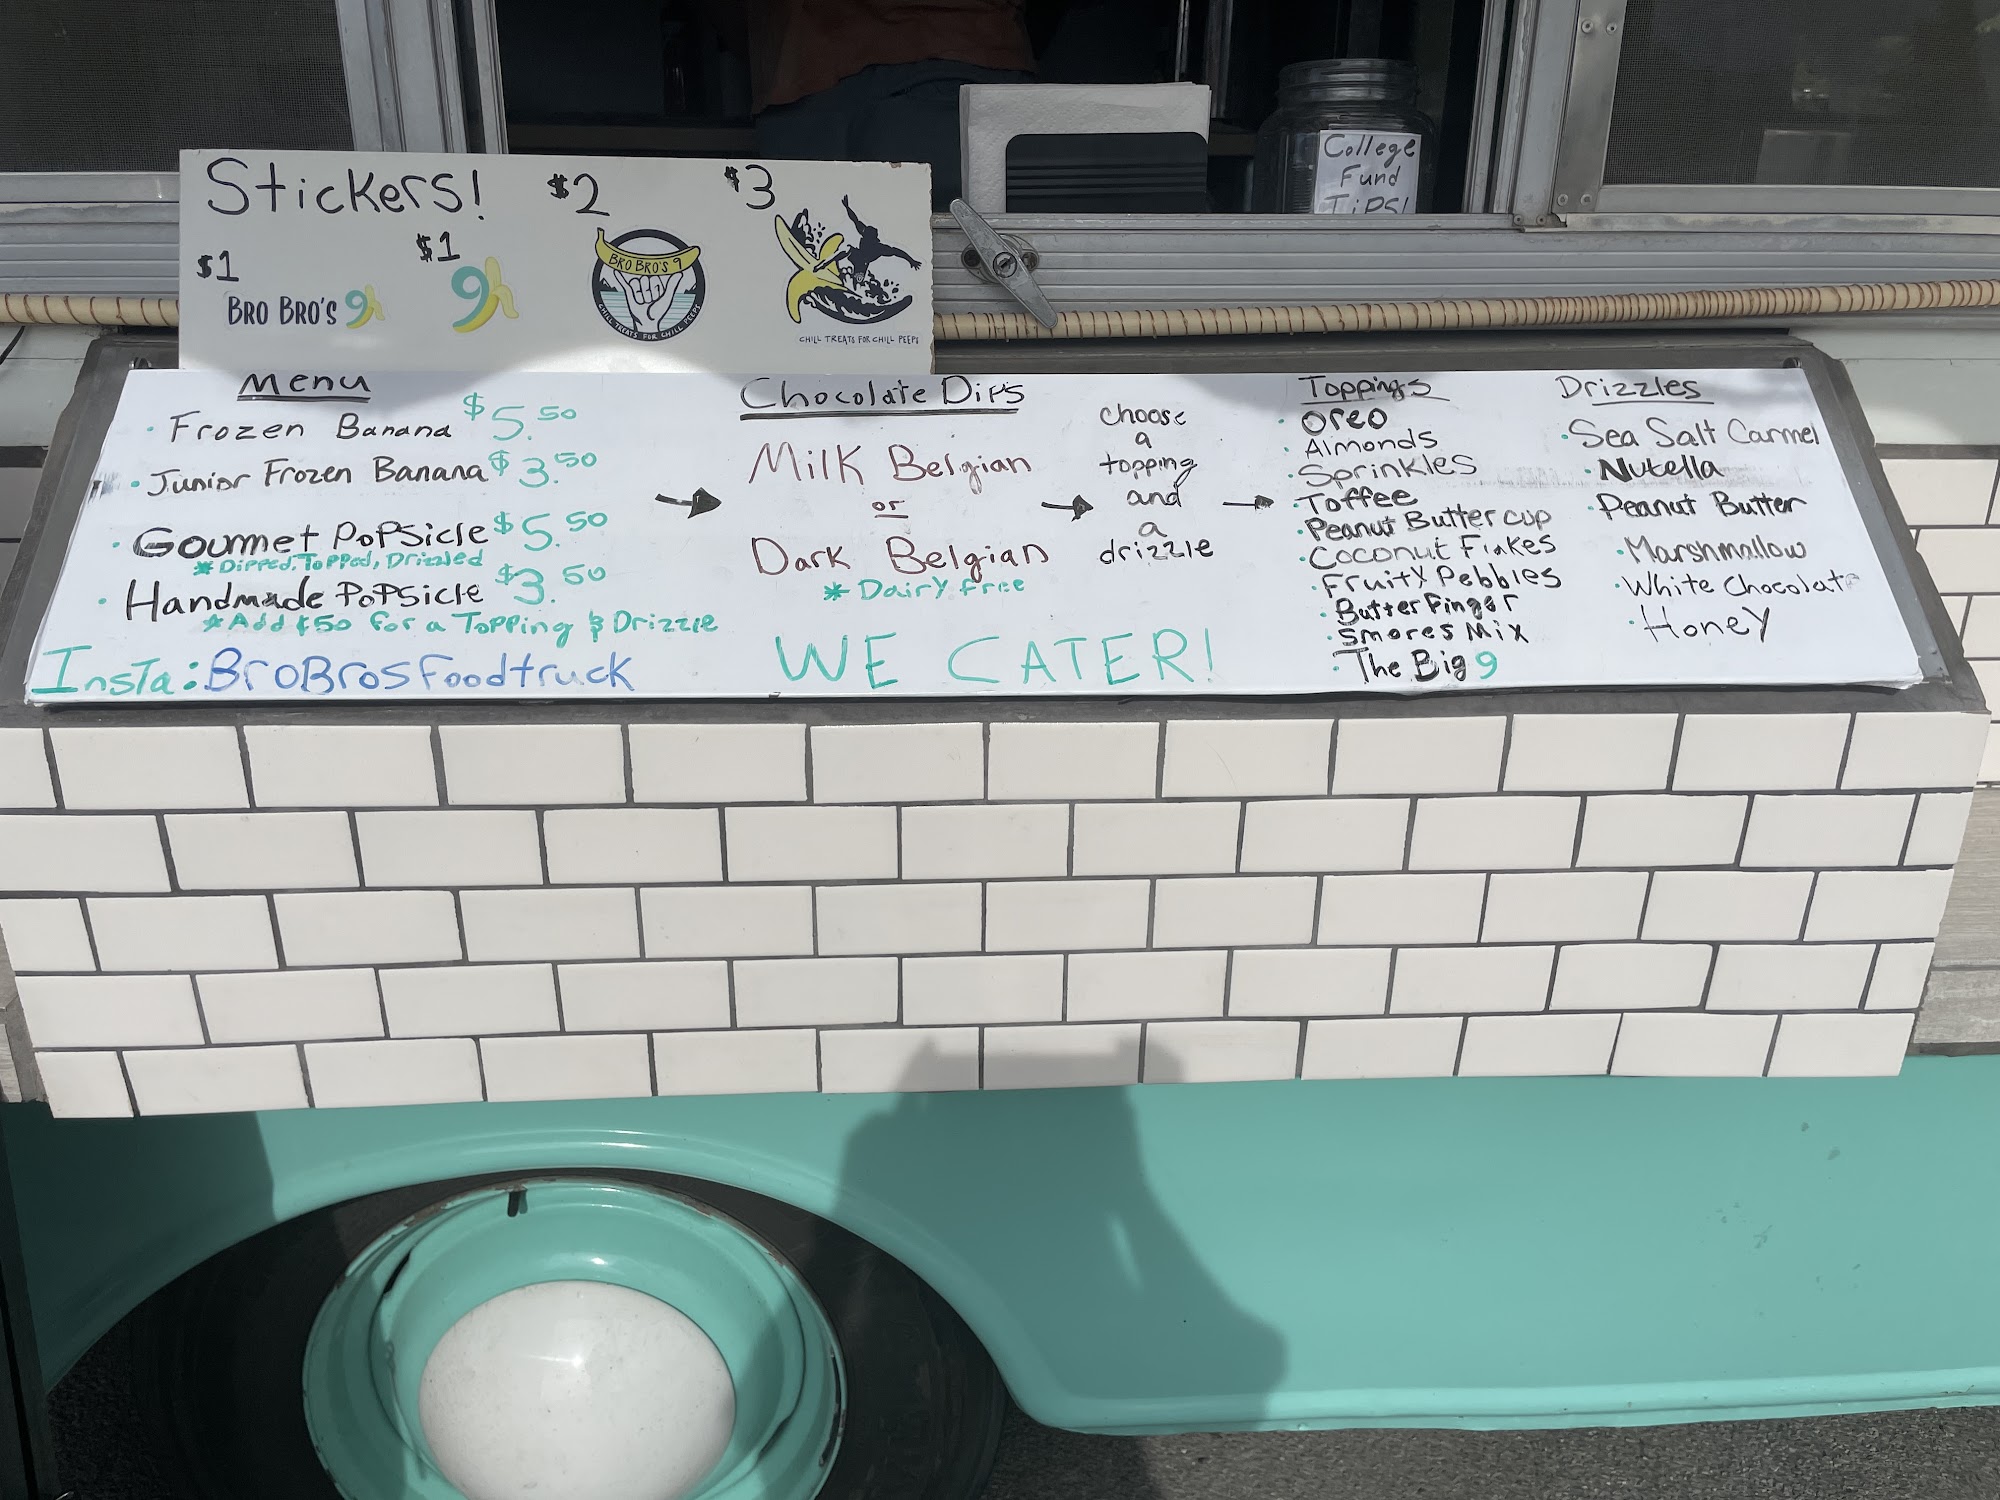 Stickers!
$1
BRO BRO'S 9
$1
9
$2
BRO BRO'S 9
CHILL TREATS FOR CHILL PEEPS
$3
CHILL TREATS FOR CHILL PEEPS
College
Fund
TiPS!
Menu
Frozen Banana $5.50
Junior Frozen Banana $3.50
Gourmet PoPSicle $5.50
* Dipped, Topped, Drizzled
Handmade PoPSicle $3.50
* Add $.50 for a Topping & Drizzle
Insta: BroBrosfoodtruck
Chocolate Dips
Milk Belgian
or
Dark Belgian
* Dairy free
WE CATER!
choose
a
topping
and
a
drizzle
Toppings
Oreo
Almonds
Sprinkles
Toffee
Peanut Butter cup
Coconut Flakes
Fruity Pebbles
Butterfinger
Smores Mix
The Big 9
Drizzles
Sea Salt Carmel
Nutella
Peanut Butter
Marshmallow
White Chocolate
Honey